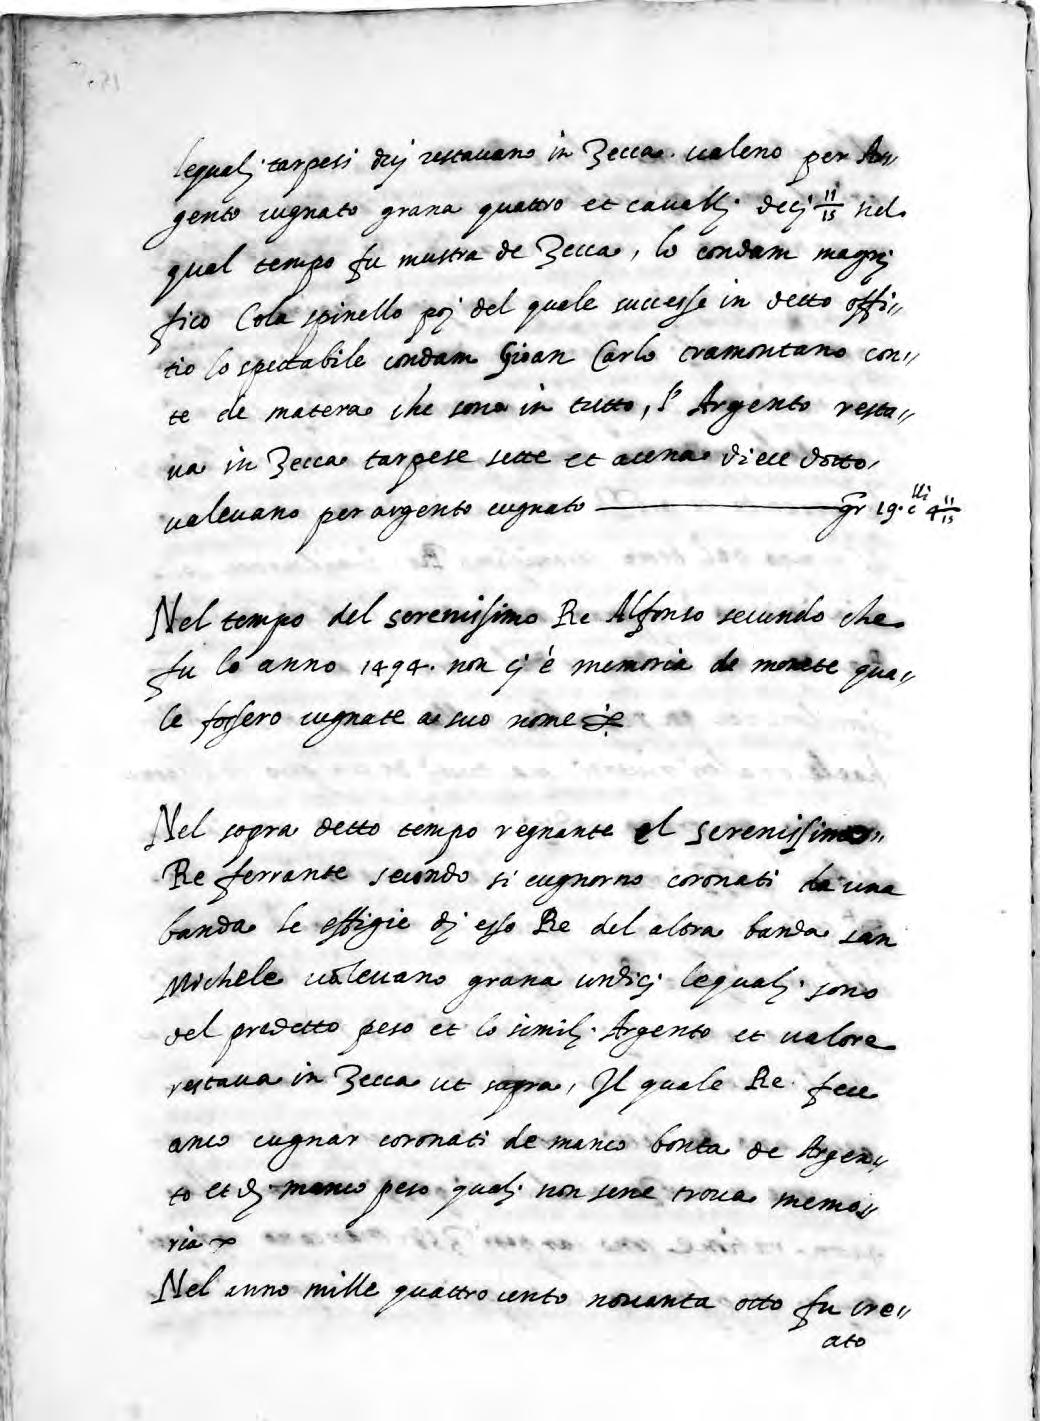 lequalj tarpesi dui restauano in Zecca. ualeno per Ar„
gento cugnato grana quattro et cauallj. decj 11/15 nel
qual tempo fu mastra de Zecca, lo condam magnj
fico Cola spinello poj del quale successe in detto offi„
tio lo spectabile condam Gioan Carlo tramontano con„
te de matera che sono in tutto, l' Argento resta„
ua in Zecca tarpese sette et acena diece dotto,
valeuano per argento cugnato — gr 19. c lli 4 11/15
Nel tempo del serenissimo Re Alfonso secundo che
fu lo anno 1494. non cj è memoria de monete qua„
le fossero cugnate a suo nome
Nel sopra detto tempo regnante el serenissimo„
Re ferrante secondo si cugnorno coronati da una
banda le effigie dj esso Re del altra banda san
Michele ualeuano grana undicj lequalj. sono
del predetto peso et lo similj. Argento et ualore
restaua in Zecca ut sopra, Il quale Re fece
anco cugnar coronati de manco bonta de Argen„
to et dj manco peso qualj. non sene troua memo„
ria
Nel anno mille quattro cento nouanta otto fu cre„
ato